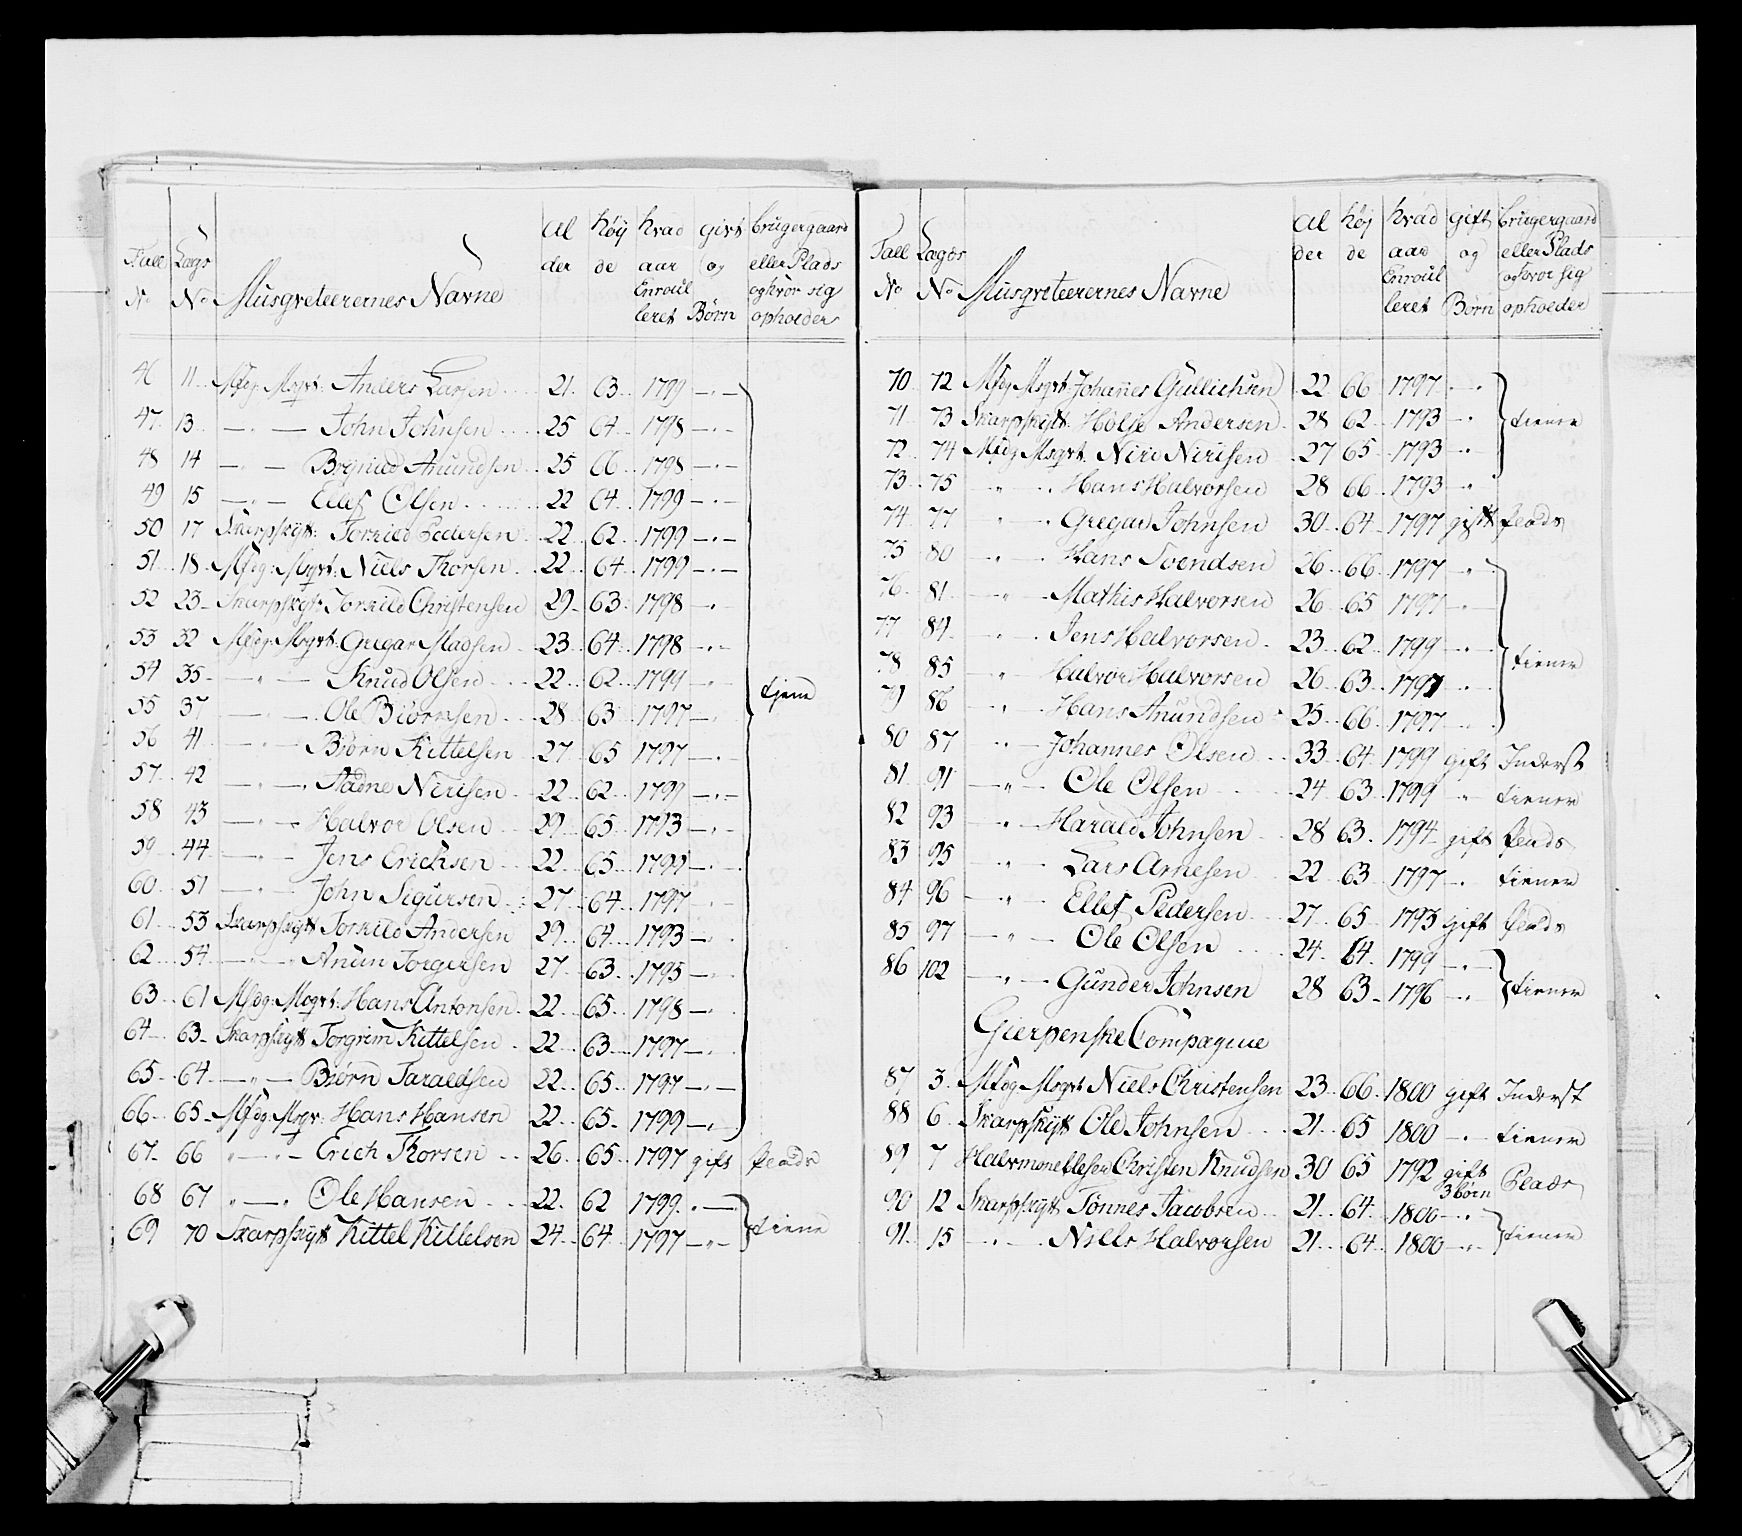 Tall No | Lægs No | Musqveteerernes Navne | Al der | høy de | hvad aar Enroul leret | givt og Børn | brugergaard eller Plads og hvor sig opholder
46 11 Msdg: Msqrt: Anders Larsen 21 63 1799 — " —
47 13 — " — John Johnsen 25 64 1798 — " —
48 14 — " — Brynild Amundsen 25 66 1798 — " —
49 15 — " — Ellef Olsen 22 64 1799 — " —
50 17 Skarpskyt: Torkild Pedersen 22 62 1799 — " —
51 18 Msdg: Msqrt: Niels Thorsen 22 64 1799 — " —
52 23 Skarpskyt: Torkild Christensen 29 63 1798 — " —
53 32 Msdg: Msqrt: Gregar Madsen 23 64 1798 — " —
54 35 — " — Knud Olsen 22 62 1799 — " — tjene
55 37 — " — Ole Biørnsen 28 63 1797 — " —
56 41 — " — Biørn Kittelsen 27 65 1797 — " —
57 42 — " — Aadne Nirisen 22 62 1799 — " —
58 43 — " — Halvor Olsen 29 65 1793 — " —
59 44 — " — Jens Erichsen 22 65 1799 — " —
60 51 — " — John Sigursen 27 64 1797 — " —
61 53 Skarpskytt Torkild Andersen 29 64 1793 — " —
62 54 — " — Anun Torgersen 27 63 1795 — " —
63 61 Msdg: Msqrt: Hans Antonsen 22 65 1798 — " —
64 63 Skarpskytt Torgrim Kittelsen 22 63 1797 — " —
65 64 — " — Biørn Taraldsen 22 65 1797 — " —
66 65 Msdg: Msqr: Hans Hansen 22 65 1799 — " —
67 66 " — " — Erich Thorsen 26 65 1797 gift Plads
68 67 " — " Ole Hansen 22 62 1799 " —
69 70 Skarpskytt Kittel Kittelsen 24 64 1797 — " — tiene
Tall No | Lægds No | Musqveteerernes Navne | Al der | høj de | hvad aar Enroul leret | gift og Børn | brugergaard eller Plads og hvor sig opholder
70 72 Msdg Msqrt Johannes Gullichsen 22 66 1797 — " —
71 73 Skarpskytt: Holje Andersen 28 62 1793 — " tiener
72 74 Msdg. Msqrt. Niri Nirisen 27 65 1793 — " —
73 75 " — Hans Halvorsen 28 66 1793 — "
74 77 " — Gregar Johnsen 30 64 1797 gift Plads
75 80 — " — Hans Svendsen 26 66 1797 — " —
76 81 — " — Mathis Halvorsen 26 65 1797 — "
77 84 — " — Jens Halvorsen 23 62 1799 — " —
78 85 " — Halvor Halvorsen 26 63 1797 — " — tiener
79 86 — " — Hans Anundsen 25 66 1797 — " —
80 87 — " — Johannes Olsen 33 64 1799 gift Inderst
81 91 — " — Ole Olsen 24 63 1799 — " — tiener
82 93 — " — Harald Johnsen 28 63 1794 gift Plads
83 95 " — Lars Arnesen 22 63 1797 — " tiener
84 96 — " — Ellef Pedersen 27 65 1793 gift Plads
85 97 — " — Ole Olsen 24 64 1799 — " —
86 102 — " — Gunder Johnsen 28 63 1796 — " — tiener
Gierpenske Compagnie
87 3 Msdg Msqrt Niels Christensen 23 66 1800 gift Inderst
88 6 Skarpskytt Ole Johnsen 21 65 1800 — " — tiener
89 7 Christen Knudsen 30 65 1792 gift 3 børn Plads
90 12 Skarpskytt Tønnes Jacobsen 21 64 1800 — " —
91 15 — " — Niels Halvorsen 21 64 1800 — " — tiener